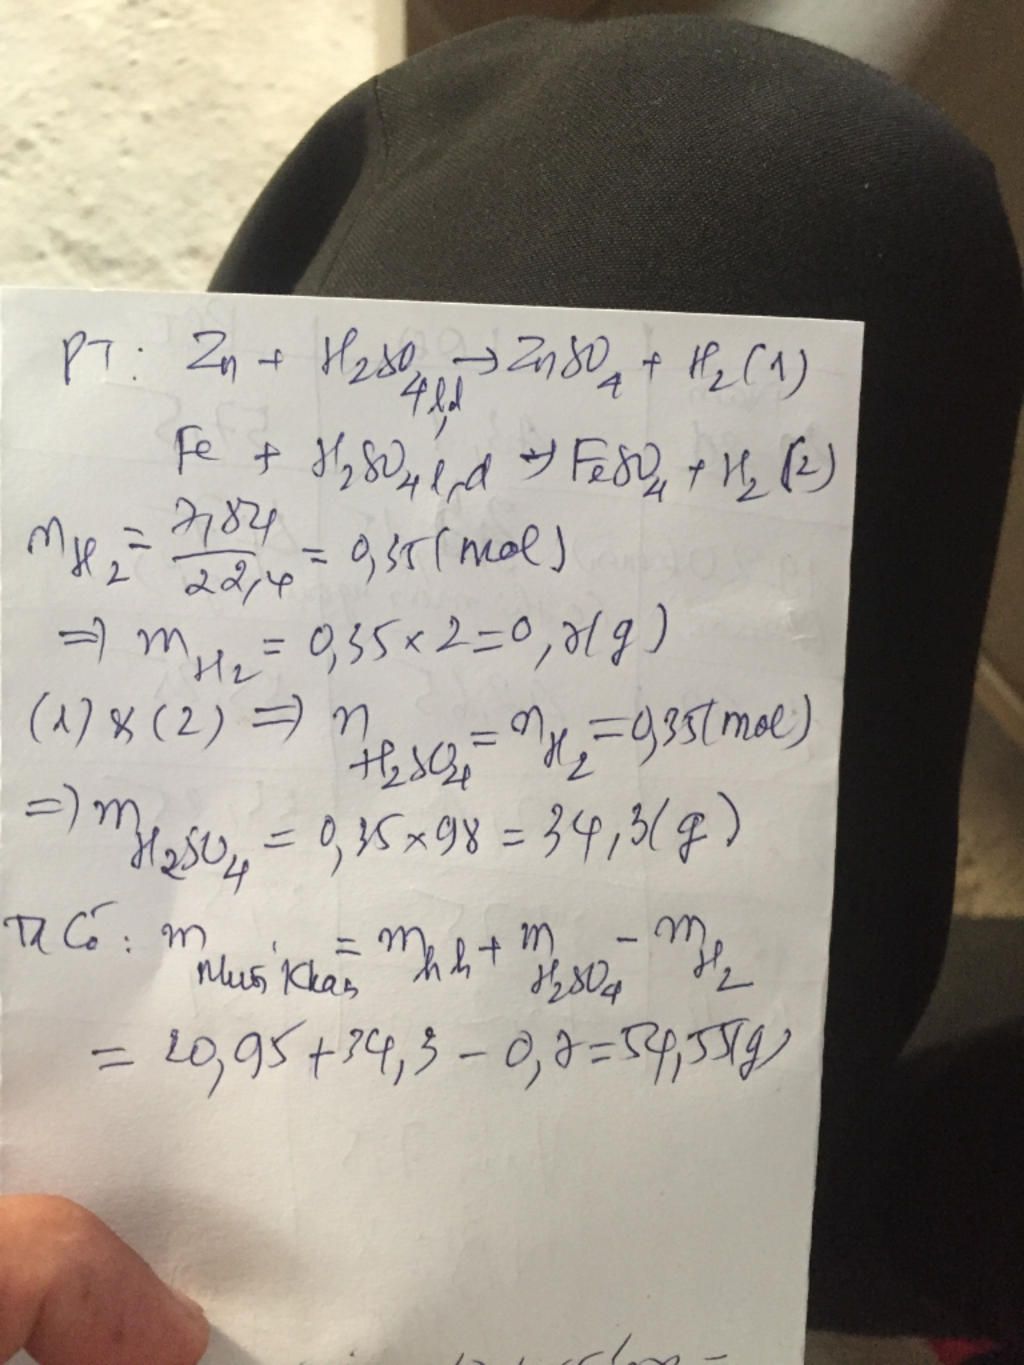 PT: Zn + H₂SO₄ l,d → ZnSO₄ + H₂ (1)
Fe + H₂SO₄ l,d → FeSO₄ + H₂ (2)
n H₂ = 7,84 / 22,4 = 0,35 (mol)
=> m H₂ = 0,35 × 2 = 0,7 (g)
(1) & (2) => n H₂SO₄ = n H₂ = 0,35 (mol)
=> m H₂SO₄ = 0,35 × 98 = 34,3 (g)
Ta có: m muối khan = m hh + m H₂SO₄ - m H₂
= 20,95 + 34,3 - 0,7 = 54,55 (g)